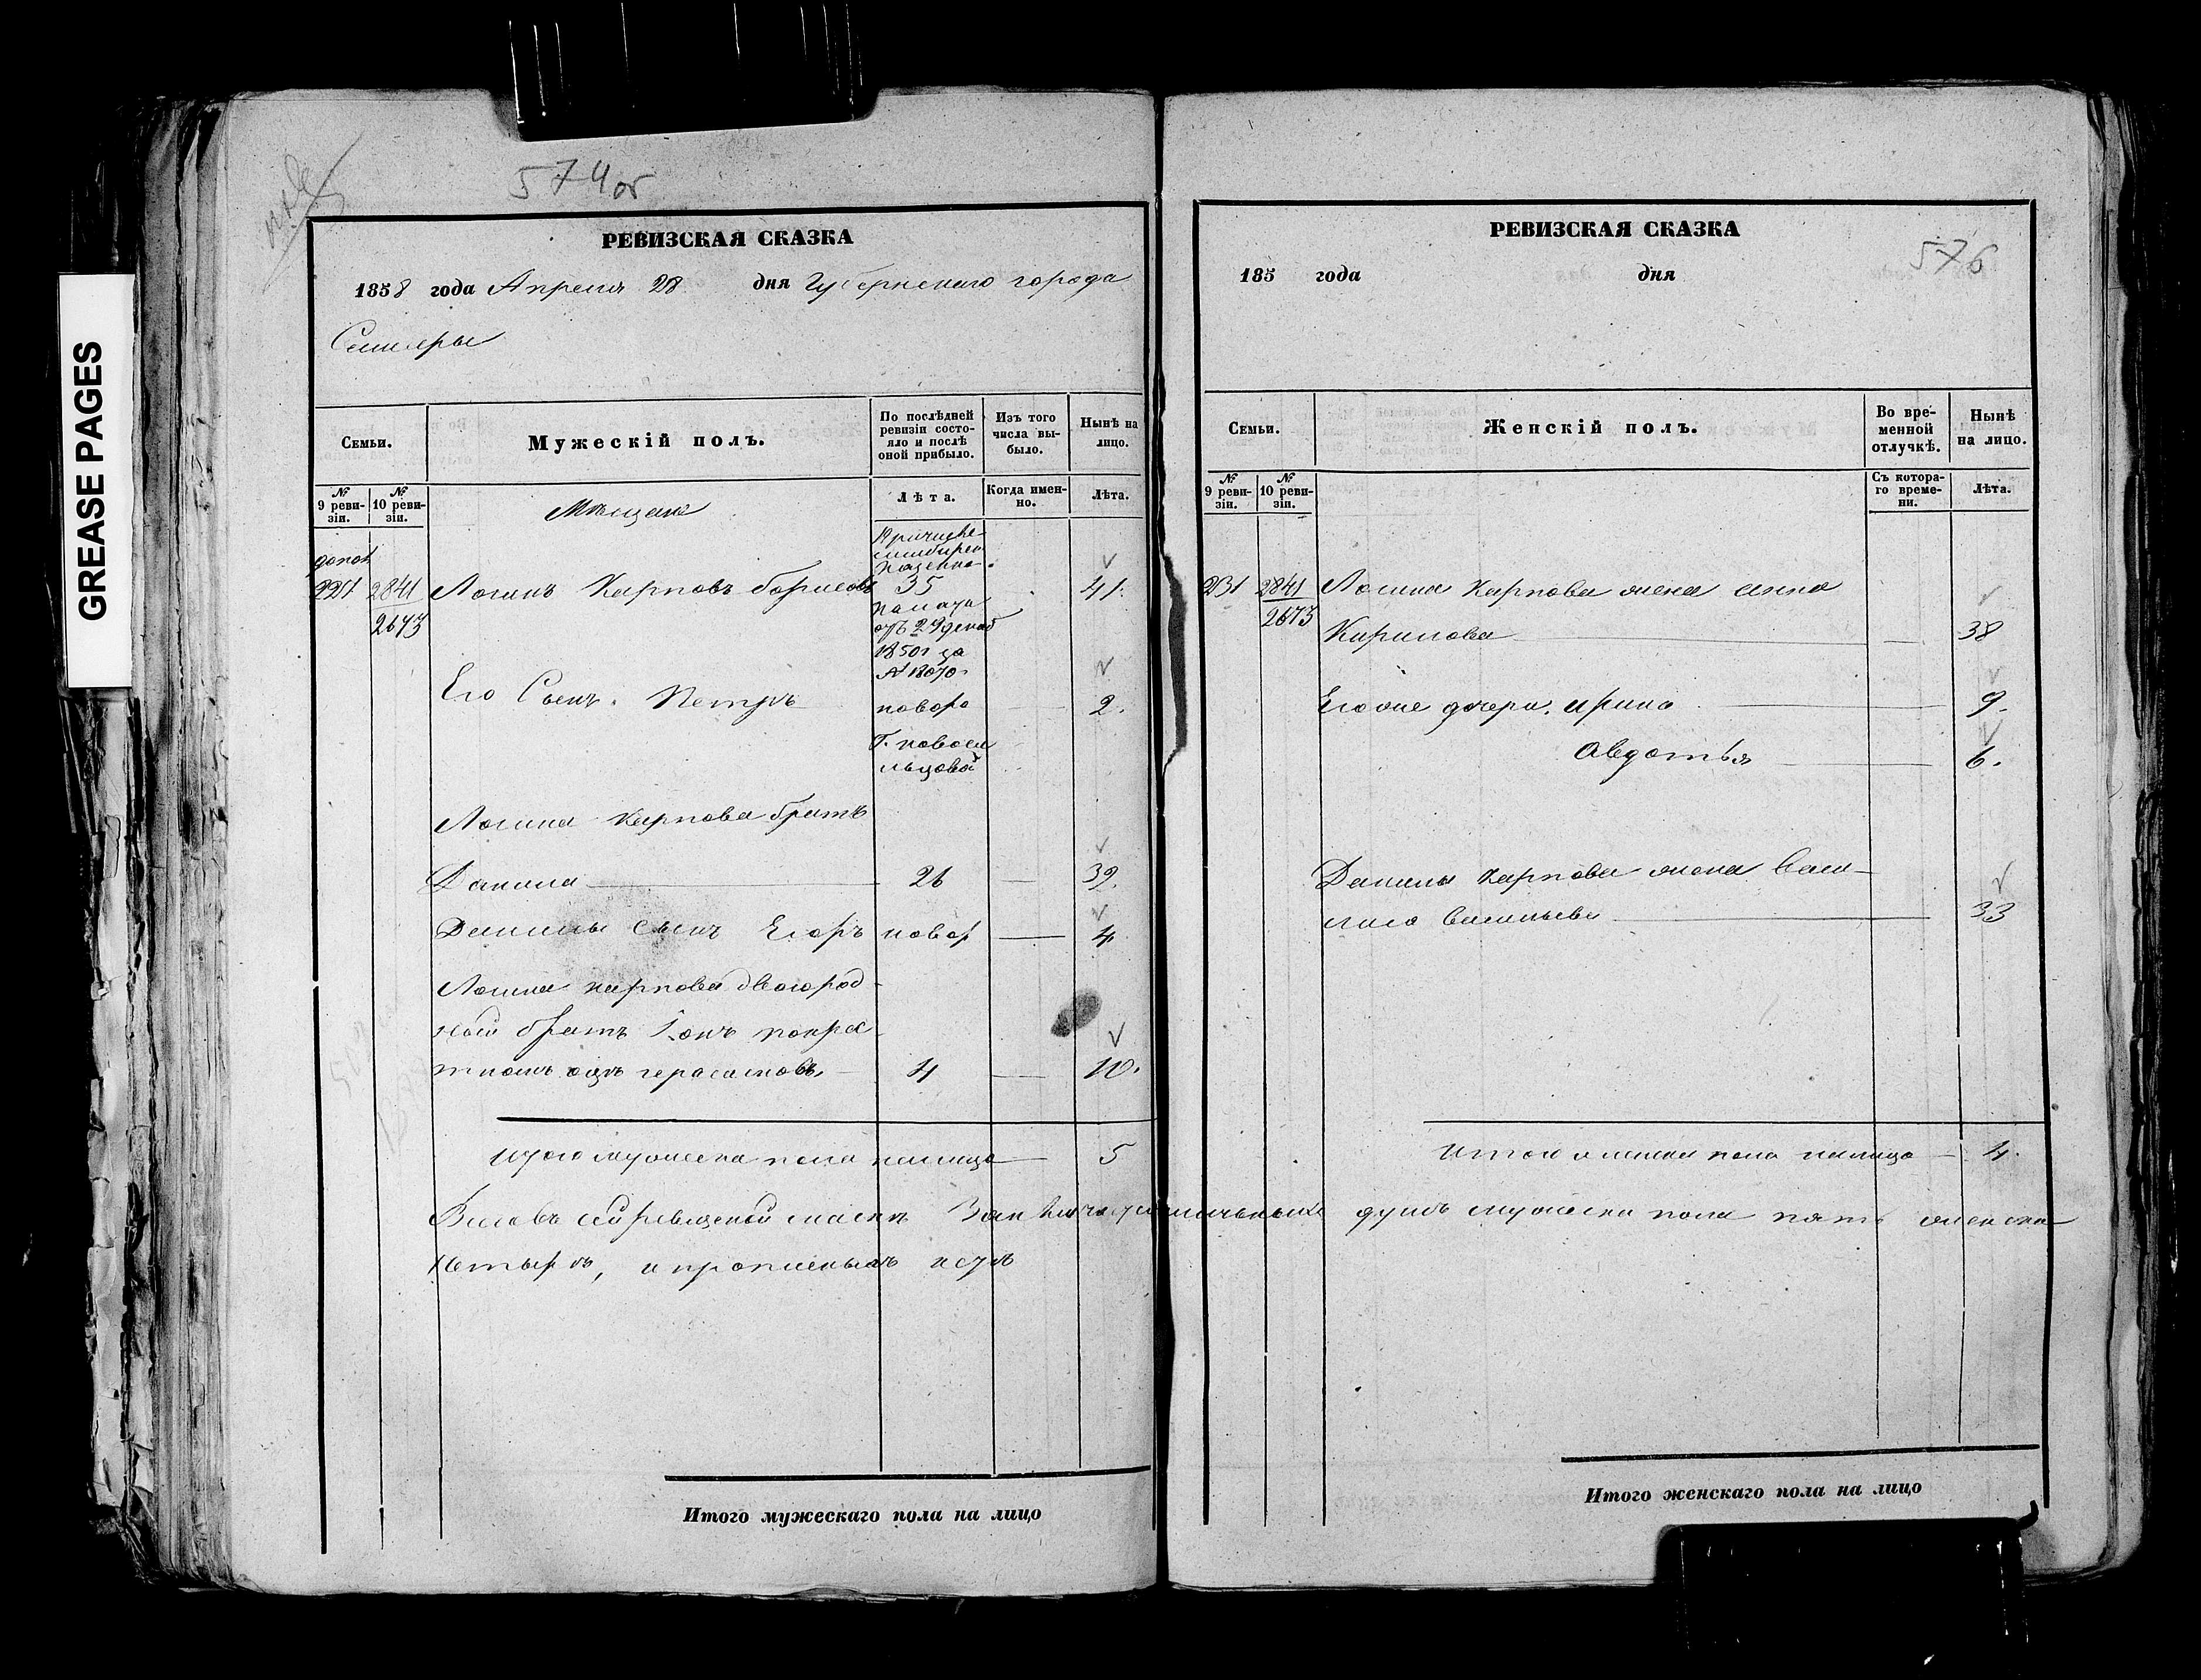 GREASE PAGES
574 об
РЕВИЗСКАЯ СКАЗКА
1858 года Апреля 28 дня Губернскаго города
Самары
Семьи.
Мужескій полъ.
По послѣдней ревизіи состояло и послѣ оной прибыло.
Изъ того числа выбыло.
Нынѣ на лицо.
№ 9 ревизіи.
№ 10 ревизіи.
Лѣта.
Когда именно.
Лѣта.
Мѣщане
допол
231 2841 Логинъ Карповъ Борисовъ 35 41.
2673
отъ 29 декаб
1850 г за
№ 18070
Его Сынъ Петръ новоро 2.
Логина Карпова братъ
Данила 26 39.
Данилы сынъ Егоръ новор 4
Логина Карпова двоюрод-
ной братъ
Герасимовъ 4 10.
Итого мужеска пола налицо 5
Всего въ сей ревизской сказке душъ мужеска пола пять женска
четыре, и прописныхъ нетъ
Итого мужескаго пола на лицо
РЕВИЗСКАЯ СКАЗКА
576
185 года дня
Семьи.
Женскій полъ.
Во временной отлучкѣ.
Нынѣ на лицо.
№ 9 ревизіи.
№ 10 ревизіи.
Съ котораго времени.
Лѣта.
231 2841 Логина Карпова жена Анна
2673 Кирилова 38
Его же дочери. Ирина 9.
Авдотья 6.
Данилы Карпова жена Васи-
лиса Васильева 33
Итого женска пола налицо 4.
Итого женскаго пола на лицо